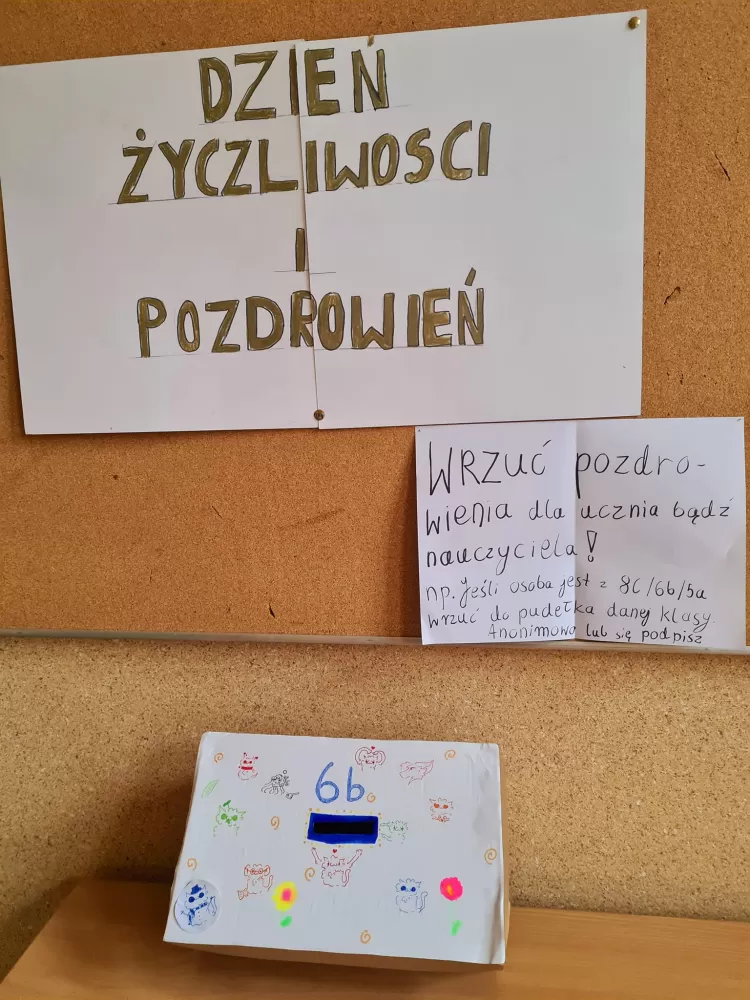 DZIEŃ
ŻYCZLIWOSCI
I
POZDROWIEŃ
WRZUĆ pozdro-
wienia dla ucznia bądź
nauczyciela!
np. Jeśli osoba jest z 8C/6b/5a
wrzuć do pudełka danej klasy.
Anonimowo lub się podpisz
6b